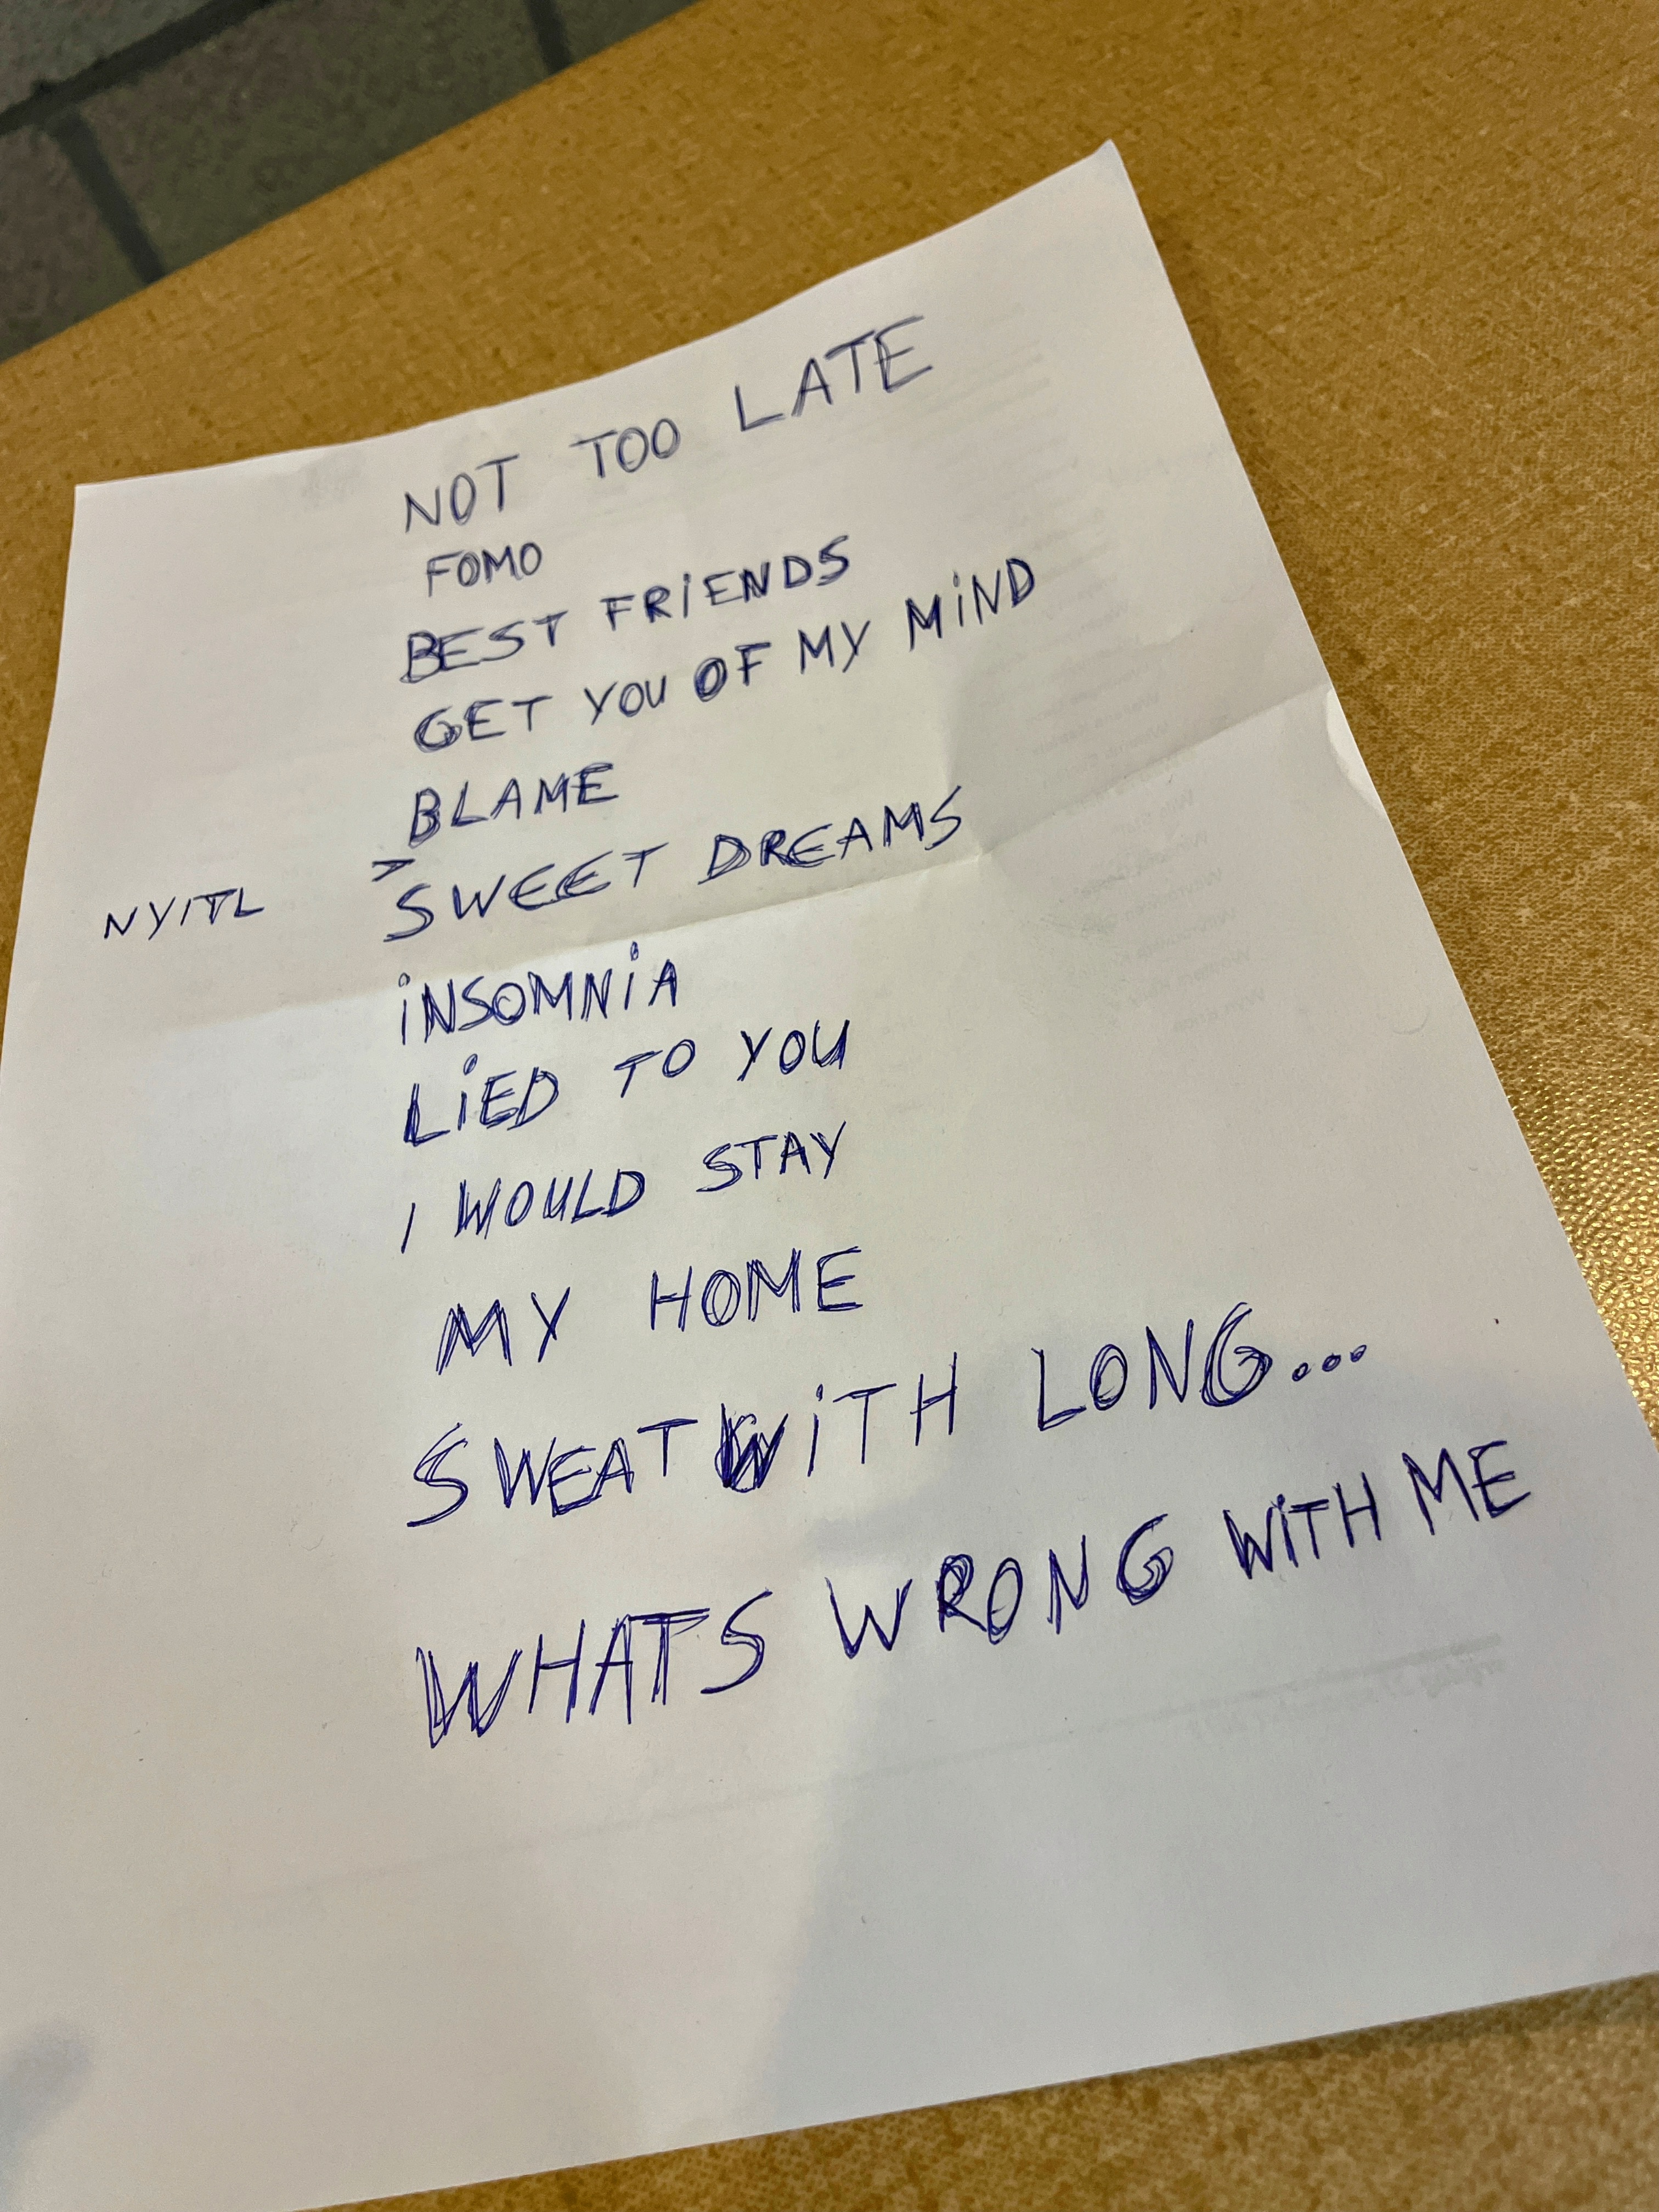 NOT TOO LATE
FOMO
BEST FRiENDS
GET YOU OF MY MiND
BLAME
NYITL >
SWEET DREAMS
iNSOMNiA
LiED TO YOU
I WOULD STAY
MY HOME
SWEAT WiTH LONG...
WHATS WRONG WiTH ME